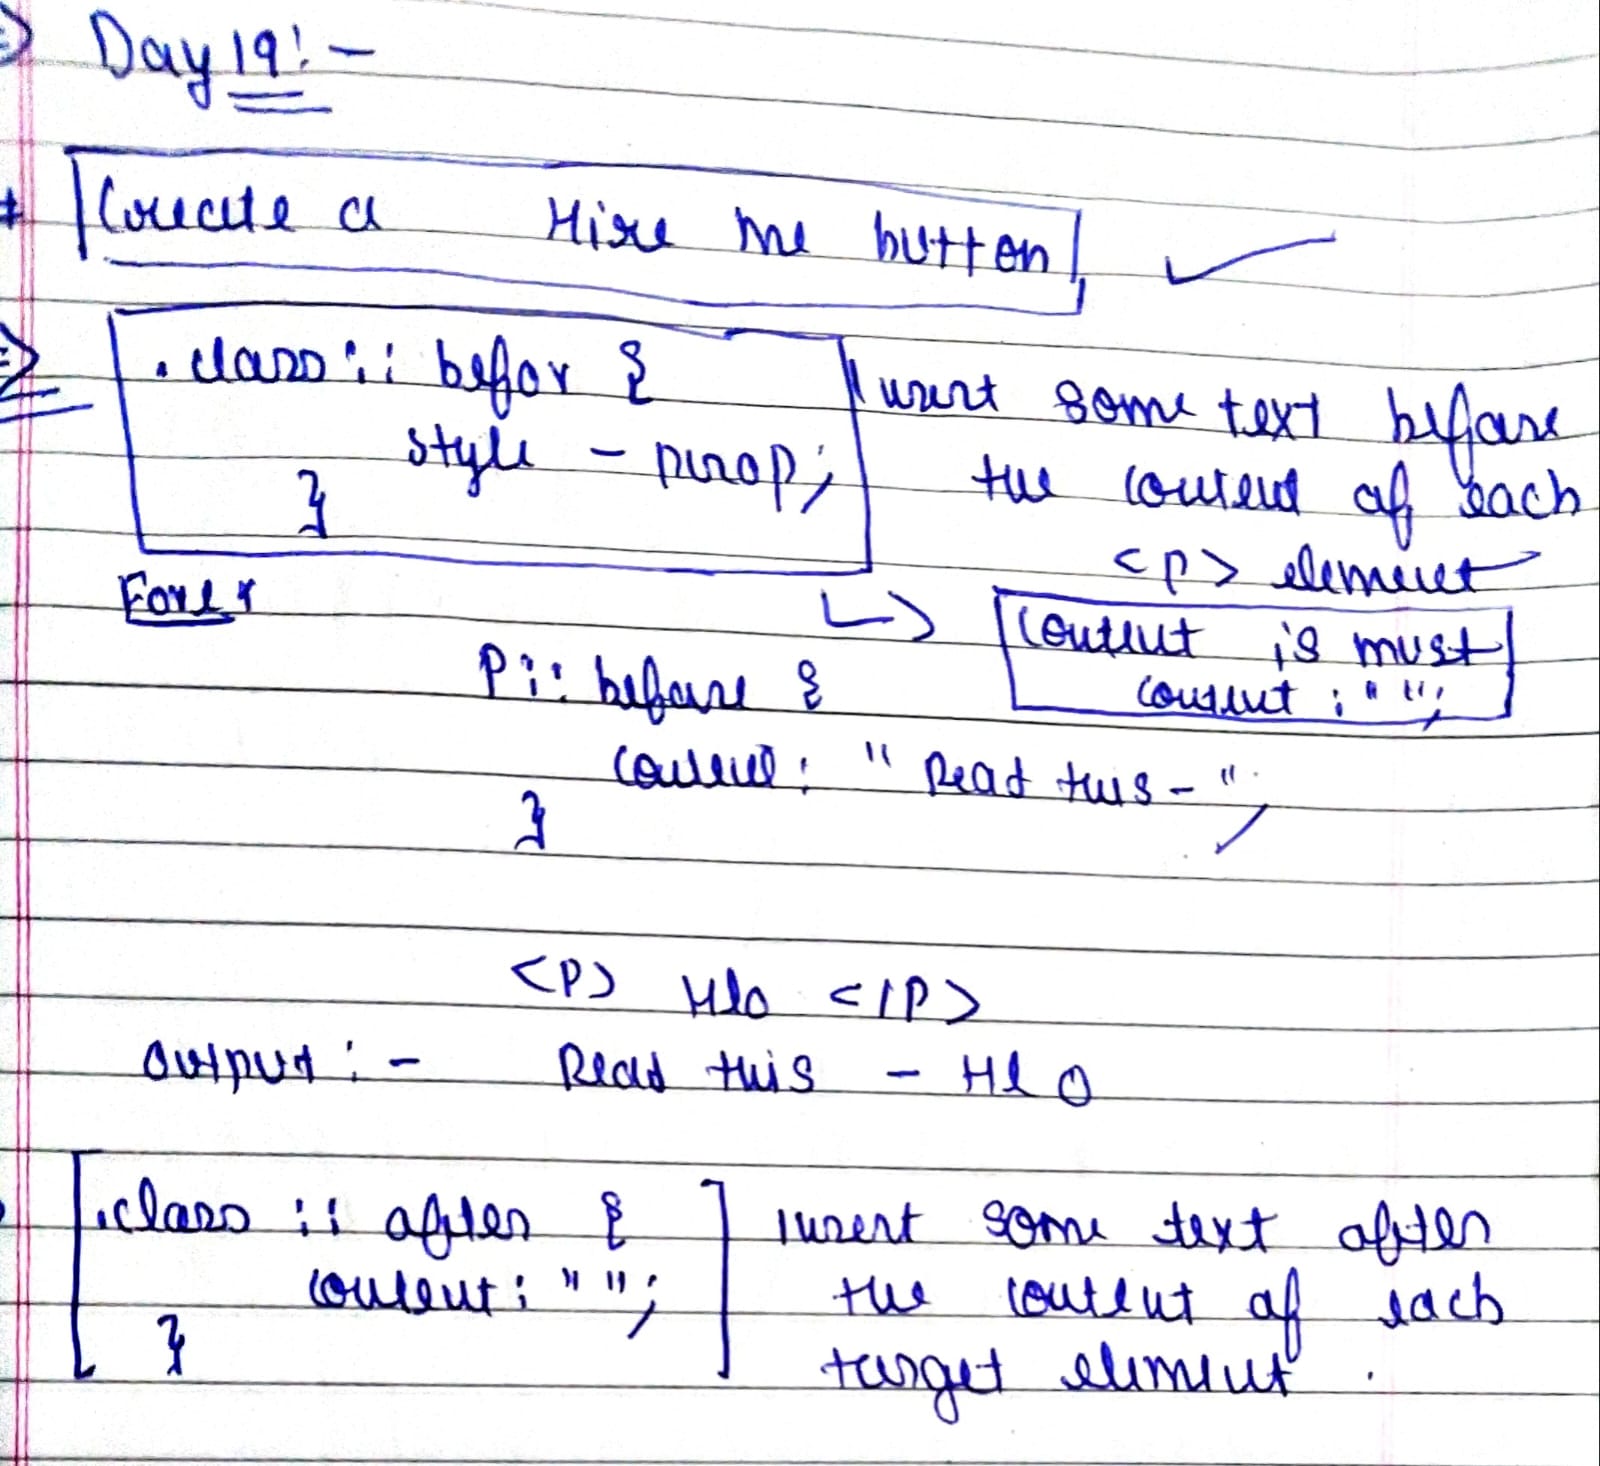 Day 19:-
Create a Hire me button
.class :: befor {
style - prop;
}
Insert some text before
the content of each
<p> element
content is must
content : " ";
For Ex
P:: before {
content: " Read this - ";
}
<P> Hlo </P>
output :- Read this - Hlo
.class :: after {
content : " ";
}
Insert some text after
the content of each
target element.